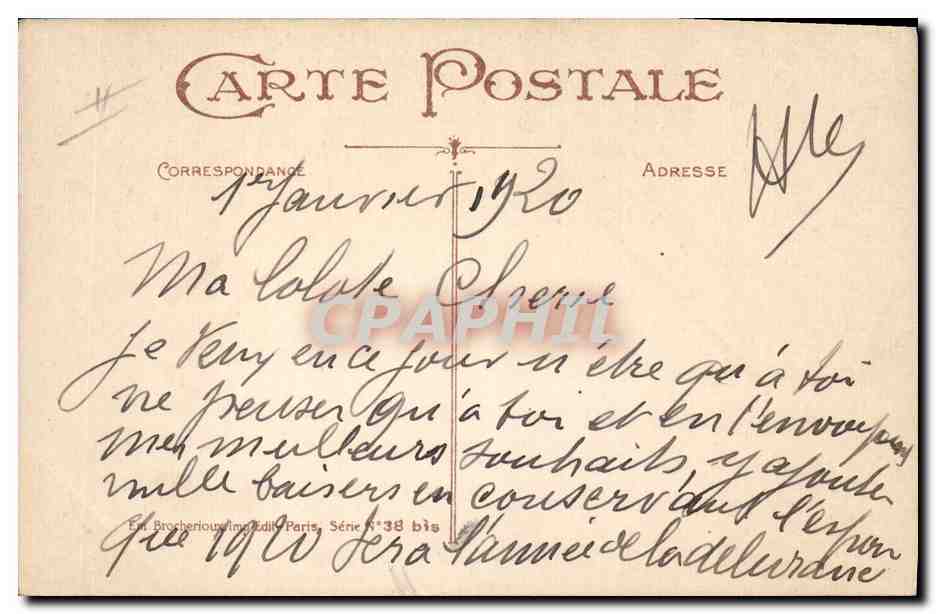 CARTE POSTALE
CORRESPONDANCE
ADRESSE
1er Janvier 1920
Ma Lolote Cherie
CPAPHIL
Je veux en ce jour n'être qu'à toi
ne penser qu'à toi et en t'envoyant
mes meilleurs souhaits, y ajouter
mille baisers en conservant l'espoir
Em. Brocherioux Imp. Edit. Paris, Série N° 38 bis
que 1920 sera l'année de la délivrance